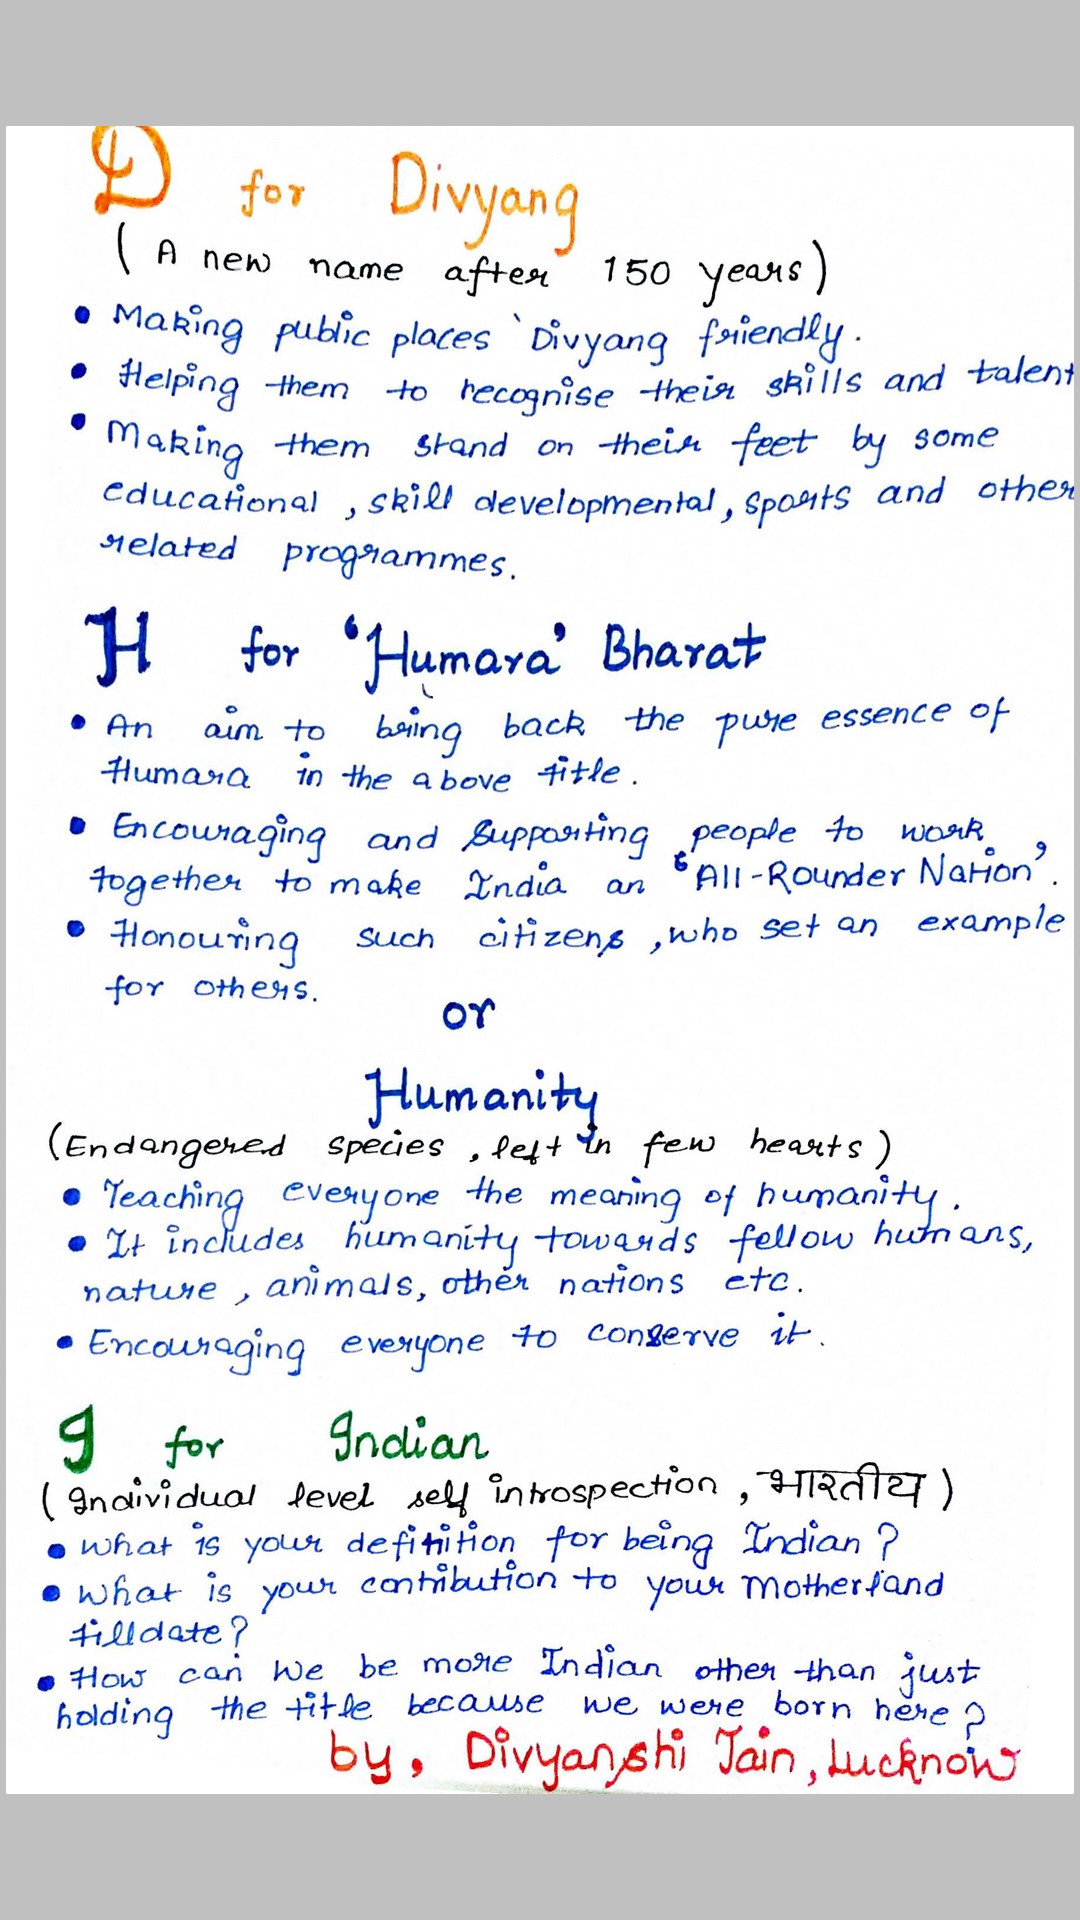 D for Divyang
(A new name after 150 years)
• Making public places 'Divyang friendly.
• Helping them to recognise their skills and talent
• Making them stand on their feet by some
educational, skill developmental, sports and other
related programmes.
H for 'Humara' Bharat
• An aim to bring back the pure essence of
Humara in the above title.
• Encouraging and supporting people to work
together to make India an 'All-Rounder Nation'.
• Honouring such citizens, who set an example
for others.
or
Humanity
(Endangered species, left in few hearts)
• Teaching everyone the meaning of humanity.
• It includes humanity towards fellow humans,
nature, animals, other nations etc.
• Encouraging everyone to conserve it.
I for Indian
(Individual level self introspection, भारतीय)
• What is your definition for being Indian?
• What is your contribution to your motherland
tilldate?
• How can we be more Indian other than just
holding the title because we were born here?
by, Divyanshi Jain, Lucknow